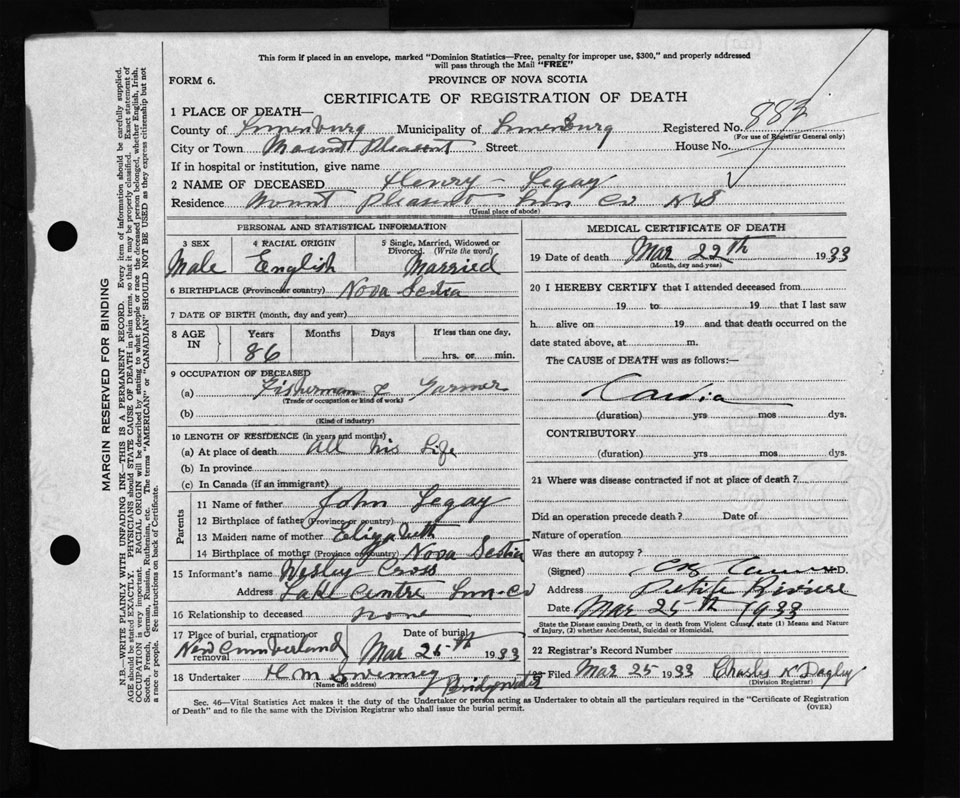 This form if placed in an envelope, marked "Dominion Statistics—Free, penalty for improper use, $300," and properly addressed
will pass through the Mail "FREE"
FORM 6.
PROVINCE OF NOVA SCOTIA
CERTIFICATE OF REGISTRATION OF DEATH
1 PLACE OF DEATH—
County of Lunenburg Municipality of Lunenburg Registered No. 883
(For use of Registrar General only)
City or Town Mount Pleasent Street House No.
If in hospital or institution, give name
2 NAME OF DECEASED Henry Legay
Residence Mount Pleasent Lun Co N S
(Usual place of abode)
PERSONAL AND STATISTICAL INFORMATION
3 SEX 4 RACIAL ORIGIN 5 Single, Married, Widowed or
Divorced. (Write the word)
Male English Married
6 BIRTHPLACE (Province or country) Nova Scotia
7 DATE OF BIRTH (month, day and year)
8 AGE IN Years Months Days If less than one day,
86 hrs. or min.
9 OCCUPATION OF DECEASED
(a) Fisherman & Farmer
(Trade or occupation or kind of work)
(b)
(Kind of industry)
10 LENGTH OF RESIDENCE (in years and months)
(a) At place of death all his Life
(b) In province
(c) In Canada (if an immigrant)
Parents
11 Name of father John Legay
12 Birthplace of father (Province or country)
13 Maiden name of mother Elizabeth
14 Birthplace of mother (Province or country) Nova Scotia
15 Informant's name Wesley Cross
Address Lake Centre Lun-Co
16 Relationship to deceased none
17 Place of burial, cremation or Date of burial
removal New Cumberland Mar 26-th 1933
18 Undertaker H M Sweeney Bridgewater
(Name and address)
MEDICAL CERTIFICATE OF DEATH
19 Date of death Mar 22th 1933
(Month, day and year)
20 I HEREBY CERTIFY that I attended deceased from
19 to 19 that I last saw
h alive on 19 and that death occurred on the
date stated above, at m.
The CAUSE of DEATH was as follows:—
Cardia
(duration) yrs mos dys.
CONTRIBUTORY
(duration) yrs mos dys.
21 Where was disease contracted if not at place of death?
Did an operation precede death? Date of
Nature of operation
Was there an autopsy?
(Signed) M.D.
Address Petite Riviere
Date Mar 25-th 1933
State the Disease causing Death, or in death from Violent Causes, state (1) Means and Nature
of Injury, (2) whether Accidental, Suicidal or Homicidal.
22 Registrar's Record Number
Filed Mar 25 1933 Charles N Dagley
(Division Registrar)
Sec. 46—Vital Statistics Act makes it the duty of the Undertaker or person acting as Undertaker to obtain all the particulars required in the "Certificate of Registration
of Death" and to file the same with the Division Registrar who shall issue the burial permit.
(OVER)
MARGIN RESERVED FOR BINDING
N.B.—WRITE PLAINLY WITH UNFADING INK—THIS IS A PERMANENT RECORD. Every item of information should be carefully supplied.
AGE should be stated EXACTLY. PHYSICIANS should STATE CAUSE OF DEATH in plain terms, so that it may be properly classified. Exact statement of
OCCUPATION is very important. RACIAL ORIGIN will be described by stating to what people or race the deceased person belonged, whether English, Irish,
Scotch, French, German, Russian, Ruthenian, etc. The terms "AMERICAN" or "CANADIAN" SHOULD NOT BE USED as they express citizenship but not
a race or people. See instructions on back of Certificate.